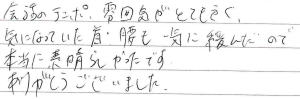 会話のテンポ、雰囲気がとてもよく、
気になっていた首・腰も一気に緩んだので
本当に素晴らしかったです。
ありがとうございました。